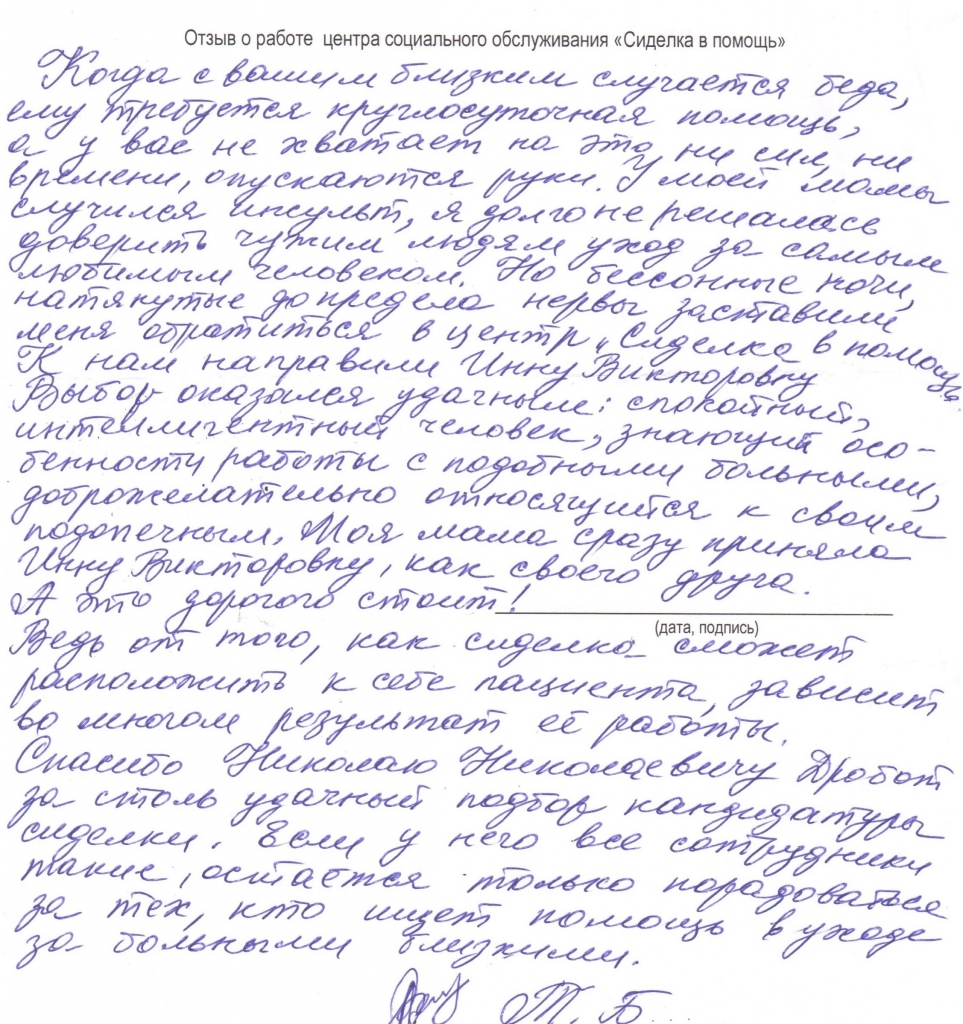 Отзыв о работе центра социального обслуживания «Сиделка в помощь»
Когда с вашим близким случается беда,
ему требуется круглосуточная помощь,
а у вас не хватает на это ни сил, ни
времени, опускаются руки. У моей мамы
случился инсульт, я долго не решалась
доверить чужим людям уход за самым
любимым человеком. Но бессонные ночи,
натянутые до предела нервы заставили
меня обратиться в центр „Сиделка в помощь".
К нам направили Инну Викторовну
Выбор оказался удачным: спокойный,
интеллигентный человек, знающий осо-
бенности работы с подобными больными,
доброжелательно относящийся к своим
подопечным. Моя мама сразу приняла
Инну Викторовну, как своего друга.
А это дорогого стоит!
(дата, подпись)
Ведь от того, как сиделка сможет
расположить к себе пациента, зависит
во многом результат её работы.
Спасибо Николаю Николаевичу Дробот
за столь удачный подбор кандидатуры
сиделки. Если у него все сотрудники
такие, остаётся только порадоваться
за тех, кто ищет помощь в уходе
за больными близкими.
Т. Б.